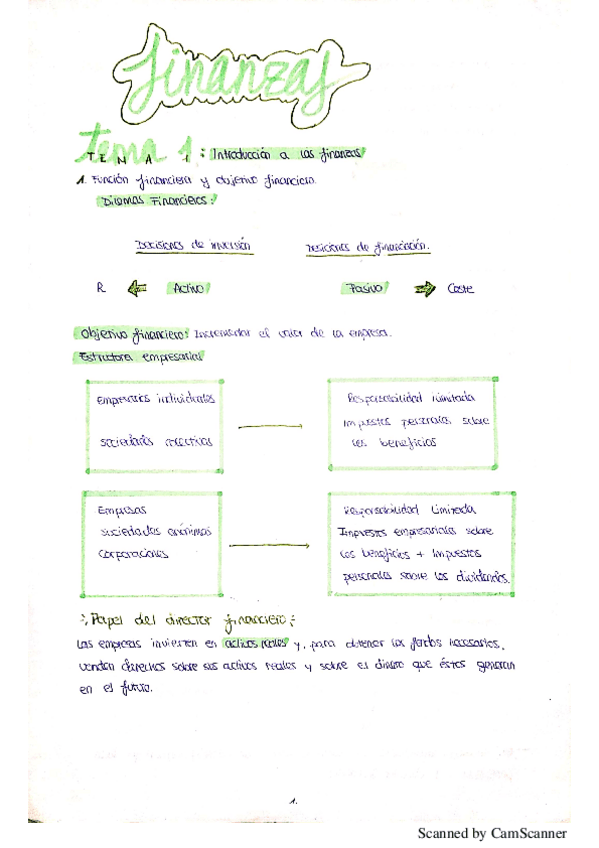 finanzas
tema 1
TEMA 1: Introducción a las finanzas
1. Función financiera y objetivo financiero.
Dilemas Financieros:
Decisiones de inversión Decisiones de financiación.
R Activo Pasivo Coste
Objetivo financiero: Incrementar el valor de la empresa.
Estructura empresarial
Empresarios individuales
sociedades colectivas
Responsabilidad ilimitada
impuestos personales sobre
los beneficios
Empresas
sociedades anónimas
corporaciones
Responsabilidad limitada
Impuestos empresariales sobre
los beneficios + impuestos
personales sobre los dividendos.
Papel del director financiero:
Las empresas invierten en activos reales y, para obtener los fondos necesarios,
venden derechos sobre sus activos reales y sobre el dinero que éstos generan
en el futuro.
1.
Scanned by CamScanner